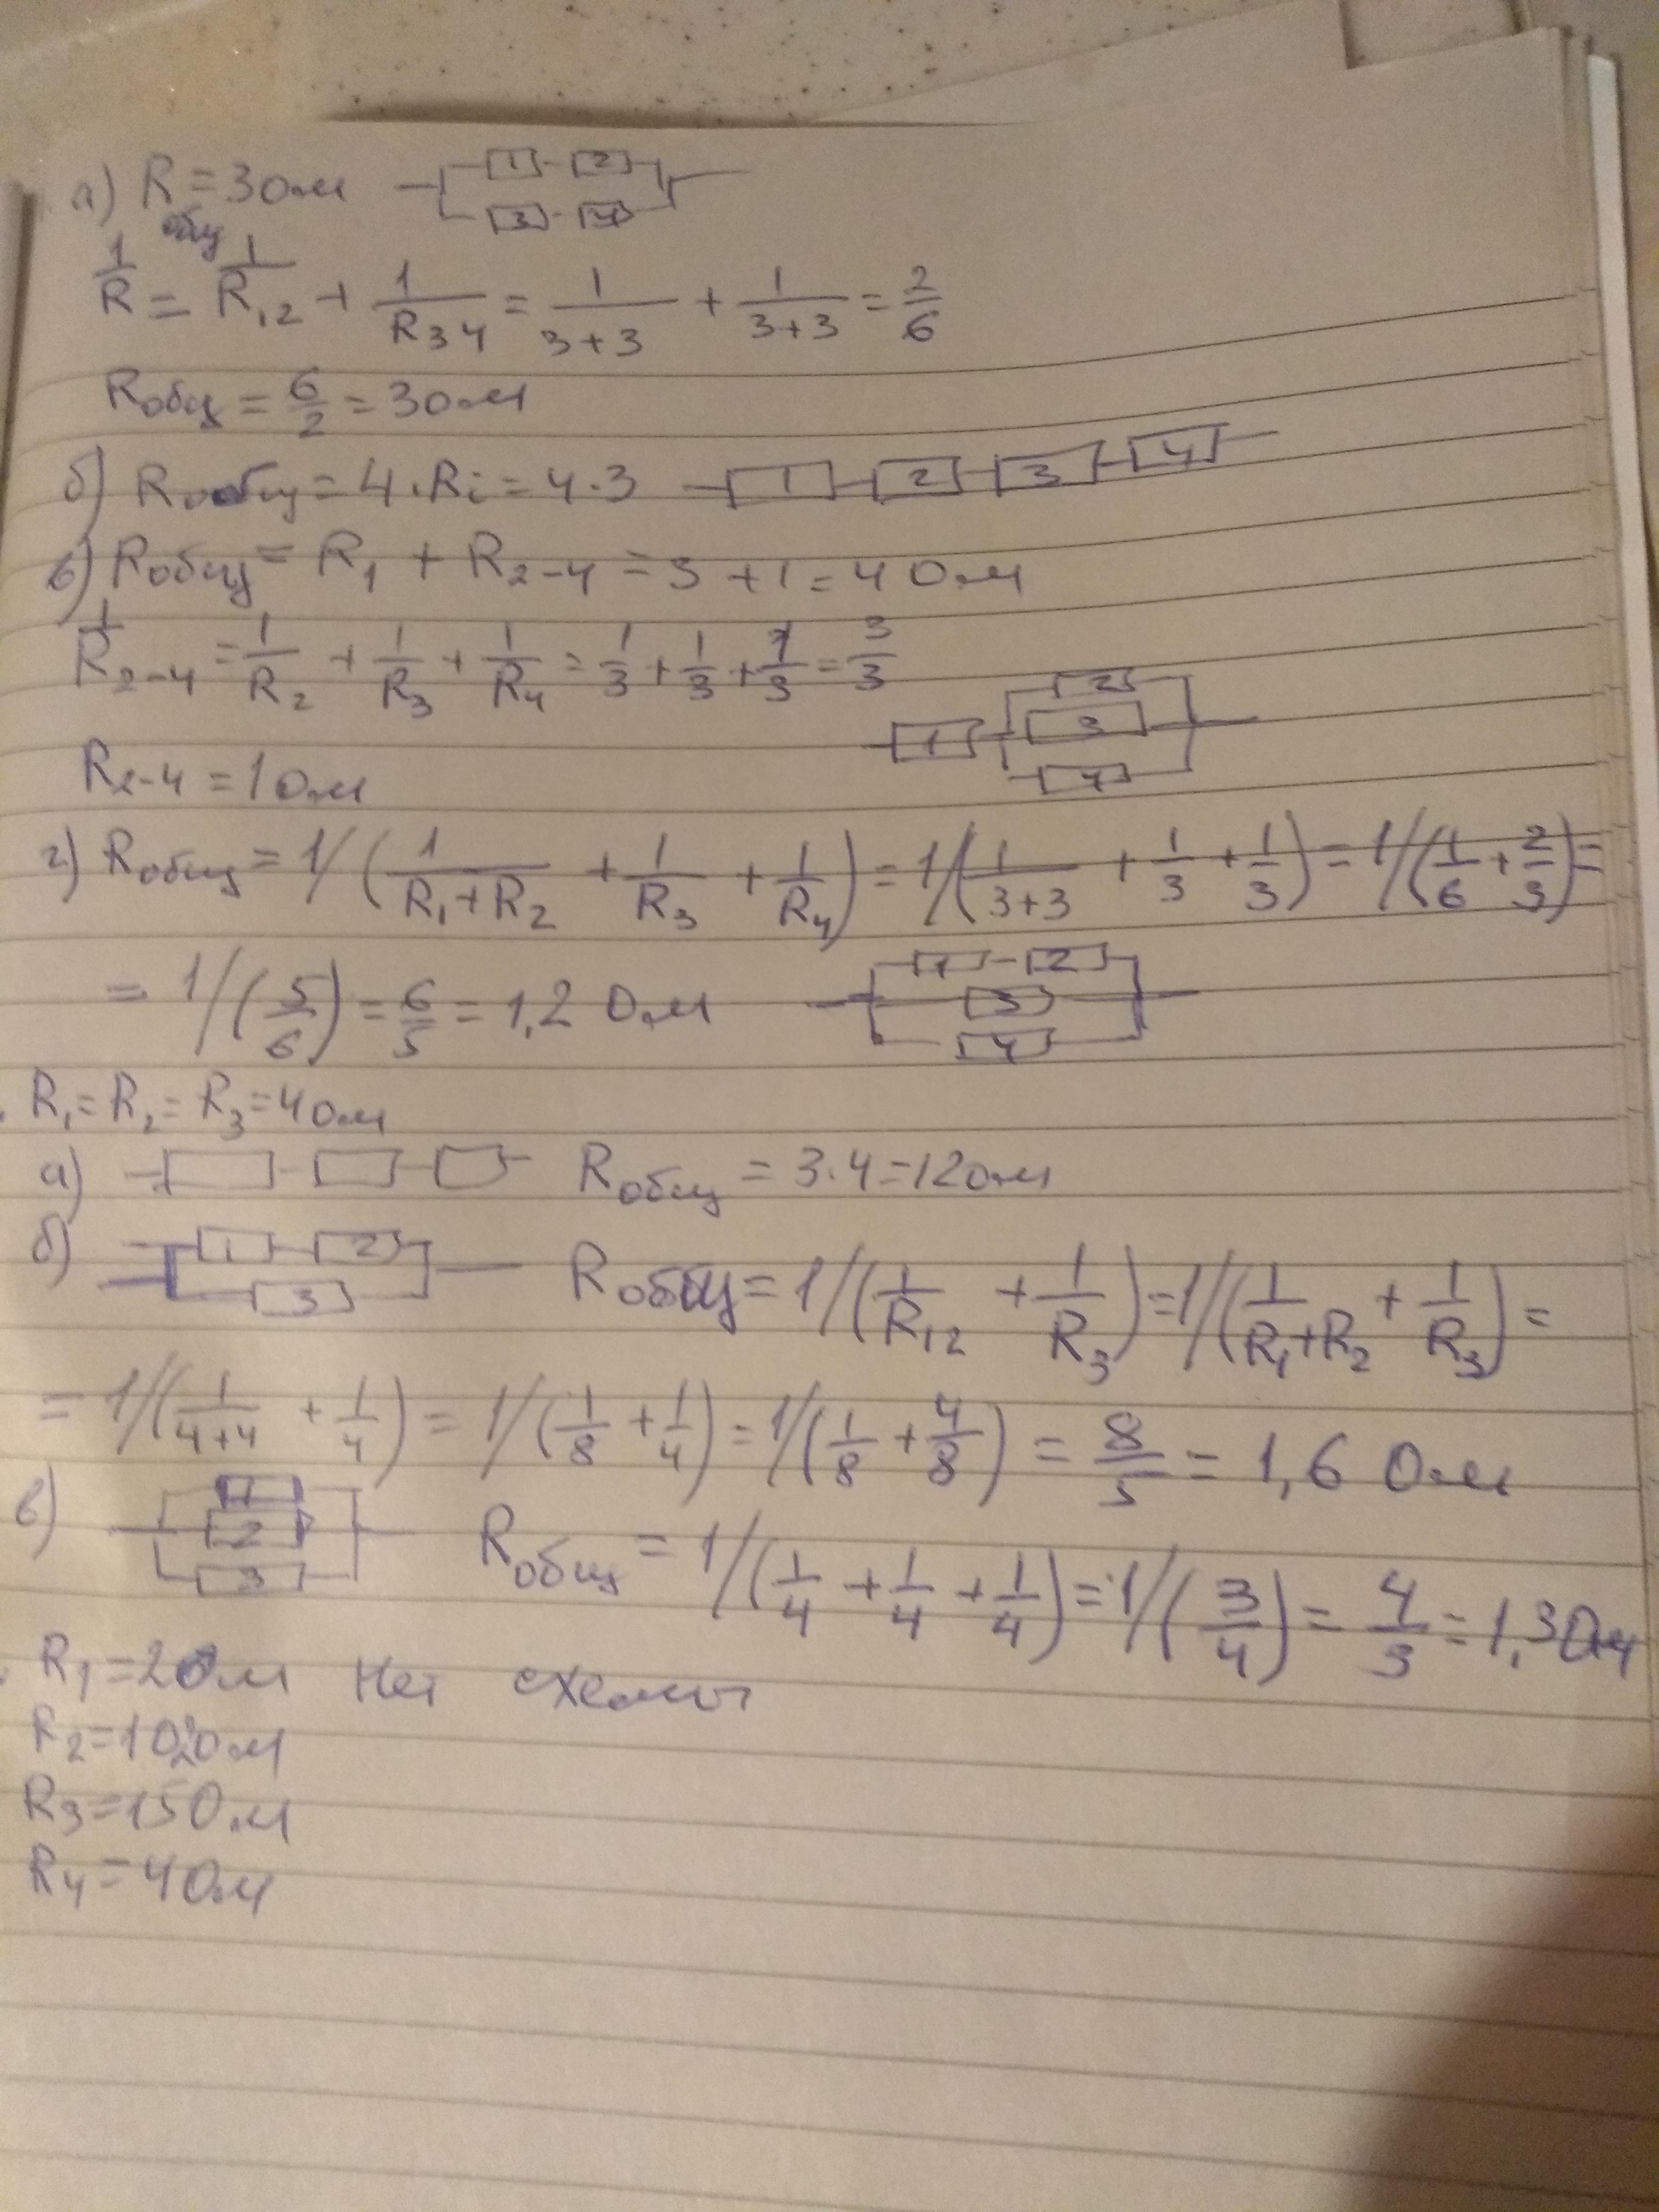 а) R = 3 Ом 1 2
общ 3 4
1/R = 1/R12 + 1/R34 = 1/(3+3) + 1/(3+3) = 2/6
Rобщ = 6/2 = 3 Ом
б) Rобщ = 4·Ri = 4·3 1 2 3 4
в) Rобщ = R1 + R2-4 = 3 + 1 = 4 Ом
1/R2-4 = 1/R2 + 1/R3 + 1/R4 = 1/3 + 1/3 + 1/3 = 3/3
R2-4 = 1 Ом 1 2 3 4
г) Rобщ = 1/(1/(R1+R2) + 1/R3 + 1/R4) = 1/(1/(3+3) + 1/3 + 1/3) = 1/(1/6 + 2/3) =
= 1/(5/6) = 6/5 = 1,2 Ом 1 2 3 4
R1 = R2 = R3 = 4 Ом
а) Rобщ = 3·4 = 12 Ом
б) 1 2 3 Rобщ = 1/(1/R12 + 1/R3) = 1/(1/(R1+R2) + 1/R3) =
= 1/(1/(4+4) + 1/4) = 1/(1/8 + 1/4) = 1/(1/8 + 4/8) = 8/5 = 1,6 Ом
в) 1 2 3 Rобщ = 1/(1/4 + 1/4 + 1/4) = 1/(3/4) = 4/3 = 1,3 Ом
R1 = 2 Ом Нет схемы
R3 = 15 Ом
R4 = 4 Ом